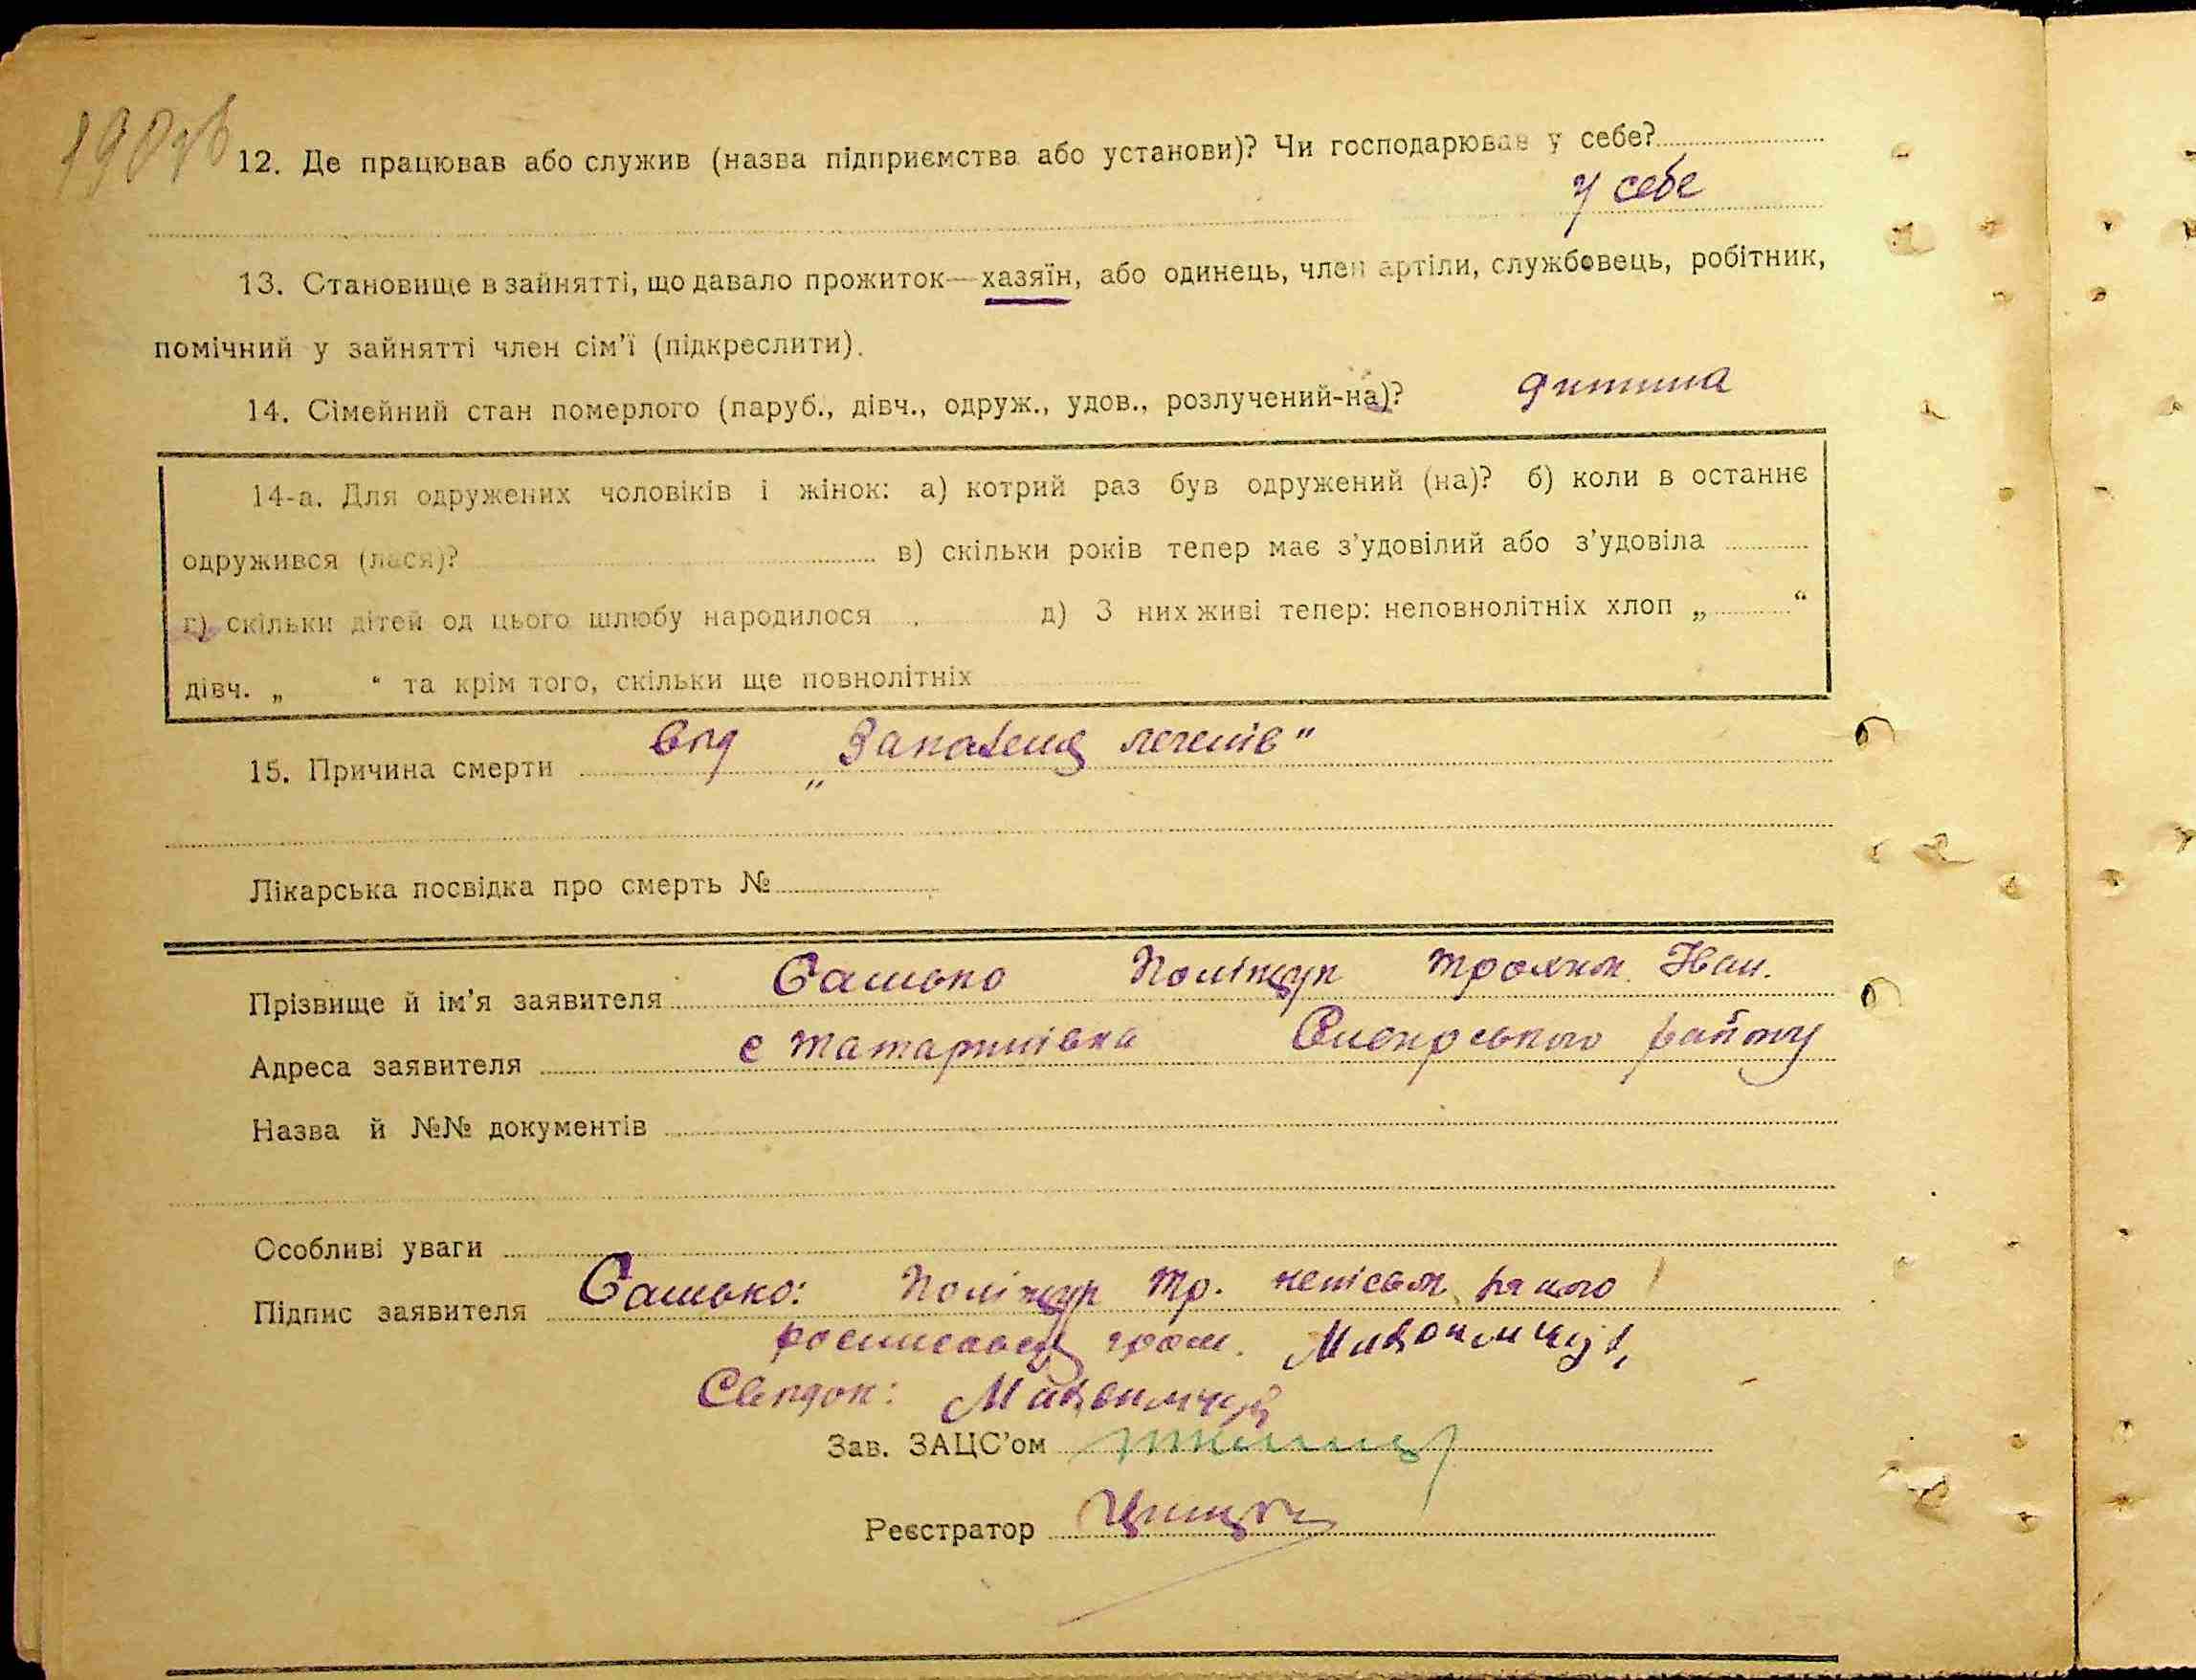 190зв
12. Де працював або служив (назва підприємства або установи)? Чи господарював у себе?
у себе
13. Становище в зайнятті, що давало прожиток—хазяїн, або одинець, член артіли, службовець, робітник,
помічний у зайнятті член сім'ї (підкреслити).
14. Сімейний стан померлого (паруб., дівч., одруж., удов., розлучений-на)? дитина
14-а. Для одружених чоловіків і жінок: а) котрий раз був одружений (на)? б) коли в останнє
одружився (лася)? в) скільки років тепер має з'удовілий або з'удовіла
г) скільки дітей од цього шлюбу народилося д) З них живі тепер: неповнолітніх хлоп „ “
дівч. „ “ та крім того, скільки ще повнолітніх
15. Причина смерти від „Запаленя легенів"
Лікарська посвідка про смерть №
Прізвище й ім'я заявителя Батько Поліщук Трохим Іван.
Адреса заявителя с Татаринівка район
Назва й №№ документів
Особливі уваги
Підпис заявителя Батько: Поліщук Тр. за його
гром.
Свідок:
Зав. ЗАЦС'ом
Реєстратор